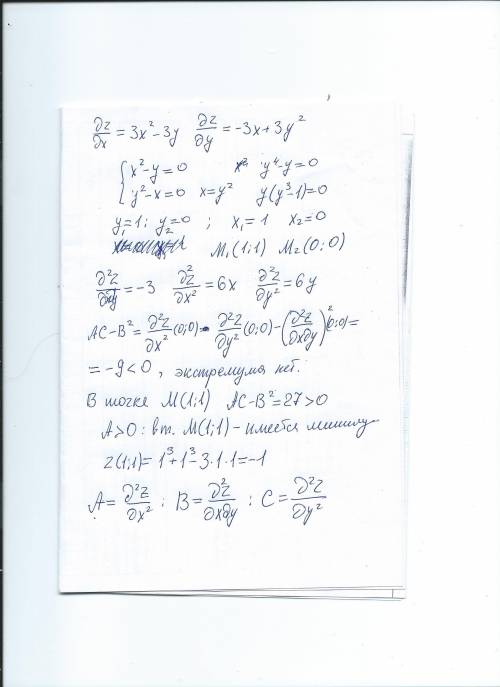 ∂z/∂x = 3x² - 3y   ∂z/∂y = -3x + 3y²
{ x² - y = 0   y⁴ - y = 0
{ y² - x = 0   x = y²   y(y³ - 1) = 0
y₁ = 1; y₂ = 0 ; x₁ = 1   x₂ = 0
M₁(1;1)   M₂(0;0)
∂²z/∂xy = -3   ∂²z/∂x² = 6x   ∂²z/∂y² = 6y
AC-B² = ∂²z/∂x² (0;0) · ∂²z/∂y² (0;0) - (∂²z/∂x∂y)² (0;0) =
= -9 < 0 , экстремума нет.
В точке M(1;1)   AC-B² = 27 > 0
A > 0 : в т. M(1;1) - имеется минимум
z(1;1) = 1³ + 1³ - 3·1·1 = -1
A = ∂²z/∂x² ; B = ∂²z/∂x∂y ; C = ∂²z/∂y²